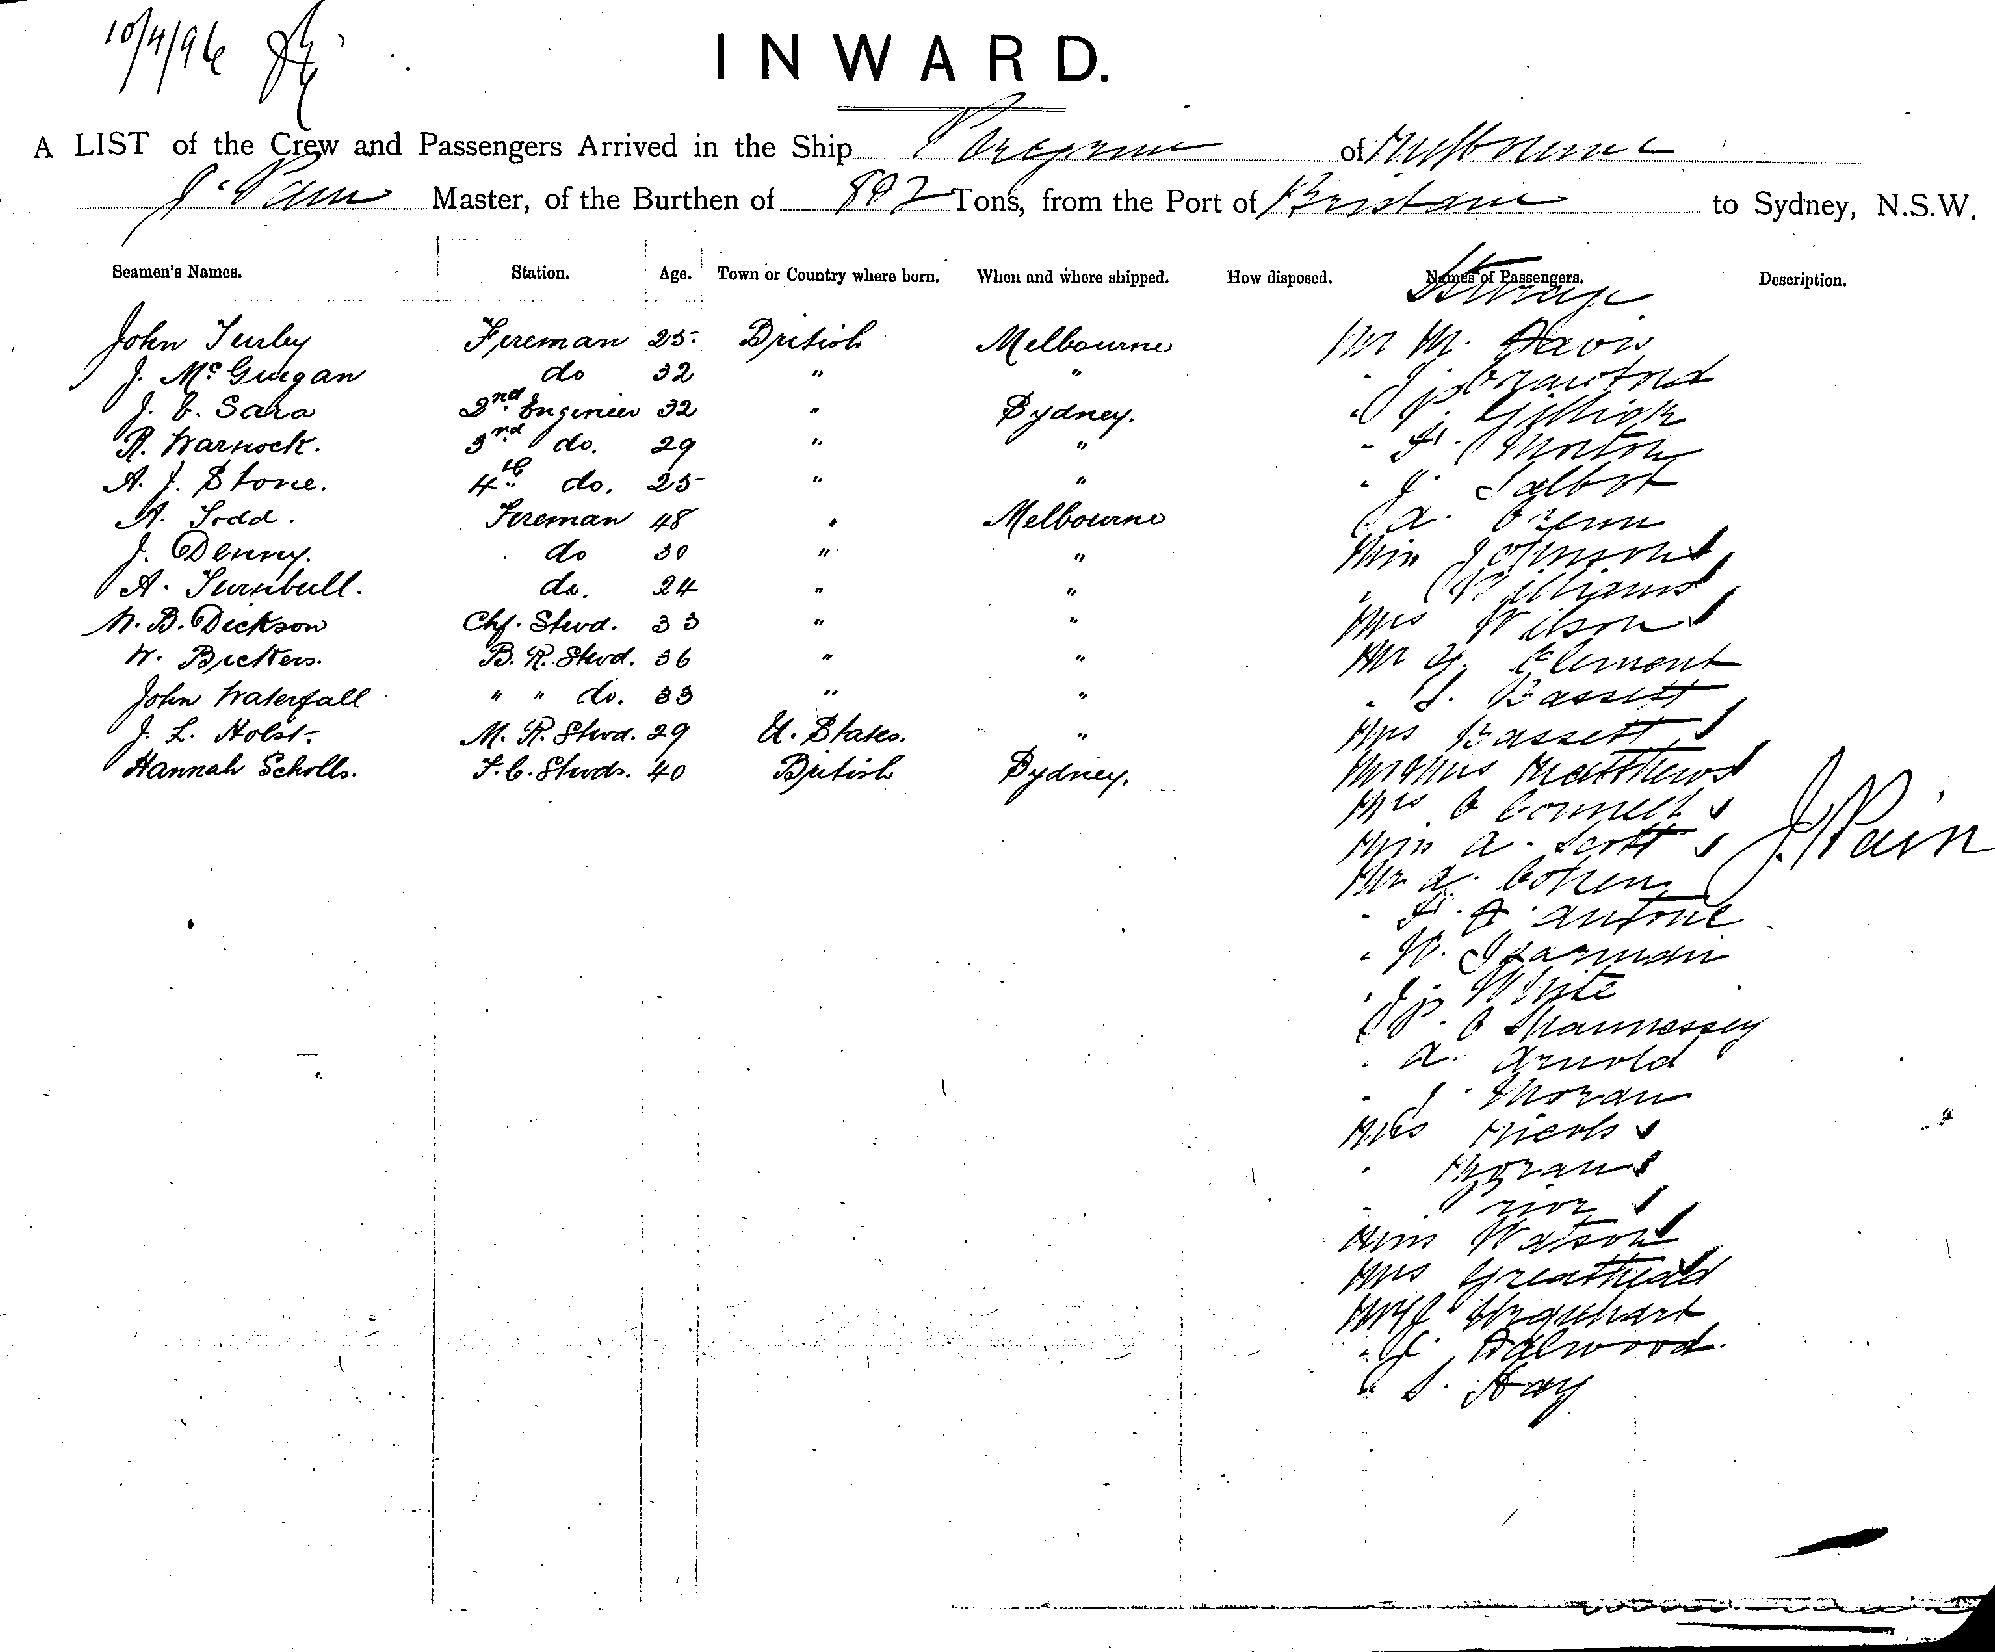 10/4/96
INWARD.
A LIST of the Crew and Passengers Arrived in the Ship Peregrine of Melbourne
J. Pain Master, of the Burthen of 892 Tons, from the Port of Brisbane to Sydney, N.S.W.
Seamen's Names. Station. Age. Town or Country where born. When and where shipped. How disposed. Names of Passengers. Description.
Steerage
John Turley Fireman 25 British Melbourne Mr M. Davis
J. McGuigan do 32 " " " J Crawford
J. C. Sara 2nd Engineer 32 " Sydney. " P. Gillick
R. Warnock. 3rd do. 29 " " " H. Morton
A. J. Stone. 4th do. 25 " " " J. Talbot
A. Todd. Fireman 48 " Melbourne A.
J. Denny. do 30 " " Miss Johnson
A. Turnbull. do. 24 " " " Williams
W. B. Dickson Chf. Stwd. 33 " " Mrs Wilson
W. Bickers. B. R. Stwd. 36 " " Mr G. Clement
John Waterfall " " do. 33 " " " S. Bassett
J. L. Holst. M. R. Stwd. 29 U. States. " Mrs Bassett
Hannah Scholls. F. C. Stwds. 40 British Sydney. Mr & Mrs Matthews
Mrs O Connell
J. Pain
Miss A. Scott
Mr A. Cohen
" H. A. Antone
" W. Jarman
" J. White
" P. O Shannessey
" A. Arnold
" J. Moran
Mrs Nicols
" Moran
"
Miss Watson
Mrs Greathead
Mr J Urquhart
" J. Dalwood.
" S. Hay